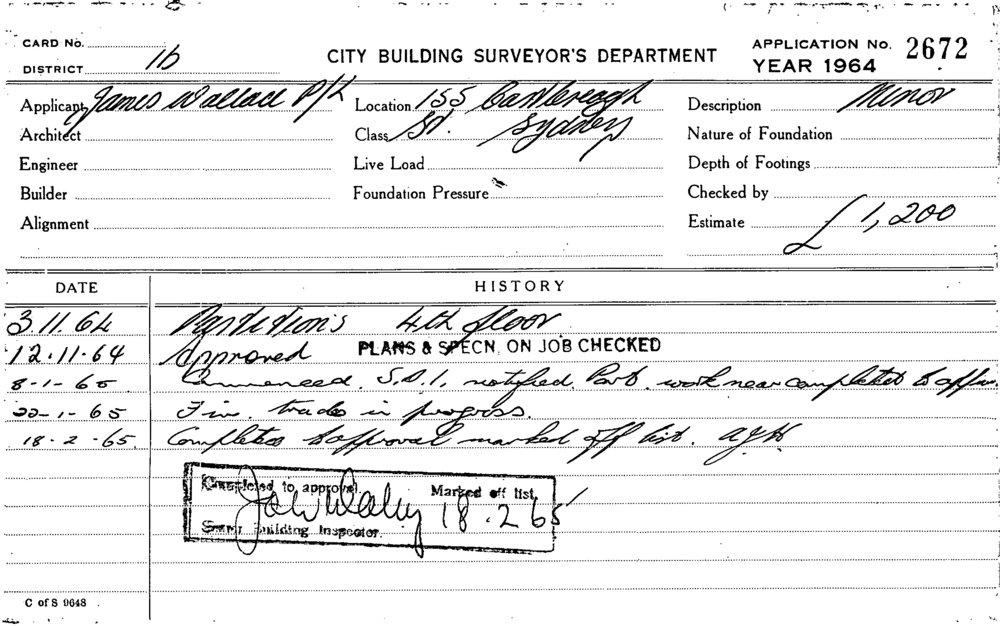 CARD No.
DISTRICT 1b
CITY BUILDING SURVEYOR'S DEPARTMENT
APPLICATION No. 2672
YEAR 1964
Applicant James Wallace P/L
Location 155 Castlereagh
Description Minor
Architect
Class St. Sydney
Nature of Foundation
Engineer
Live Load
Depth of Footings
Builder
Foundation Pressure
Checked by
Alignment
Estimate £1,200
DATE HISTORY
3.11.64 Partitions 4th floor
12.11.64 Approved PLANS & SPECN. ON JOB CHECKED
8-1-65 Commenced. S.B.I. notified. Part. work near completed to appr.
22-1-65 Fin. trades in progress.
18-2-65 Completed to approval marked off list.
Completed to approval. Marked off list,
18.2.65
Building Inspector.
C of S 9648